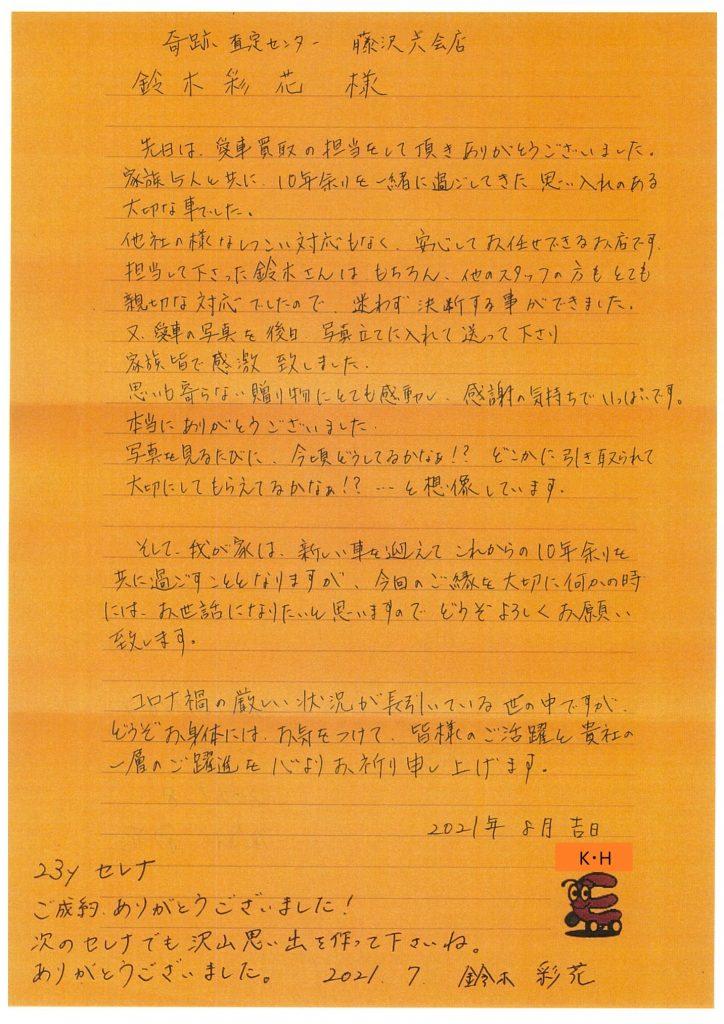 奇跡、査定センター 藤沢六会店
鈴木彩花 様
先日は、愛車買取の担当をして頂きありがとうございました。
家族5人と共に、10年余りを一緒に過ごしてきた思い入れのある
大切な車でした。
他社の様なしつこい対応もなく、安心してお任せできるお店です。
担当して下さった鈴木さんはもちろん、他のスタッフの方もとても
親切な対応でしたので、迷わず決断する事ができました。
又、愛車の写真を後日、写真立てに入れて送って下さり
家族皆で感激致しました。
思いも寄らない贈り物にとても感動し、感謝の気持ちでいっぱいです。
本当にありがとうございました。
写真を見るたびに、今頃どうしてるかなぁ!? どこかに引き取られて
大切にしてもらえてるかなぁ!? …と想像しています。
そして、我が家は、新しい車を迎えてこれからの10年余りを
共に過ごすこととなりますが、今回のご縁を大切に何かの時
には、お世話になりたいと思いますのでどうぞよろしくお願い
致します。
コロナ禍の厳しい状況が長引いている世の中ですが、
どうぞお身体には、お気をつけて、皆様のご活躍と貴社の
一層のご躍進を心よりお祈り申し上げます。
2021年 8月 吉日
K・H
23y セレナ
ご成約、ありがとうございました!
次のセレナでも沢山思い出を作って下さいね。
ありがとうございました。 2021.7 鈴木 彩花